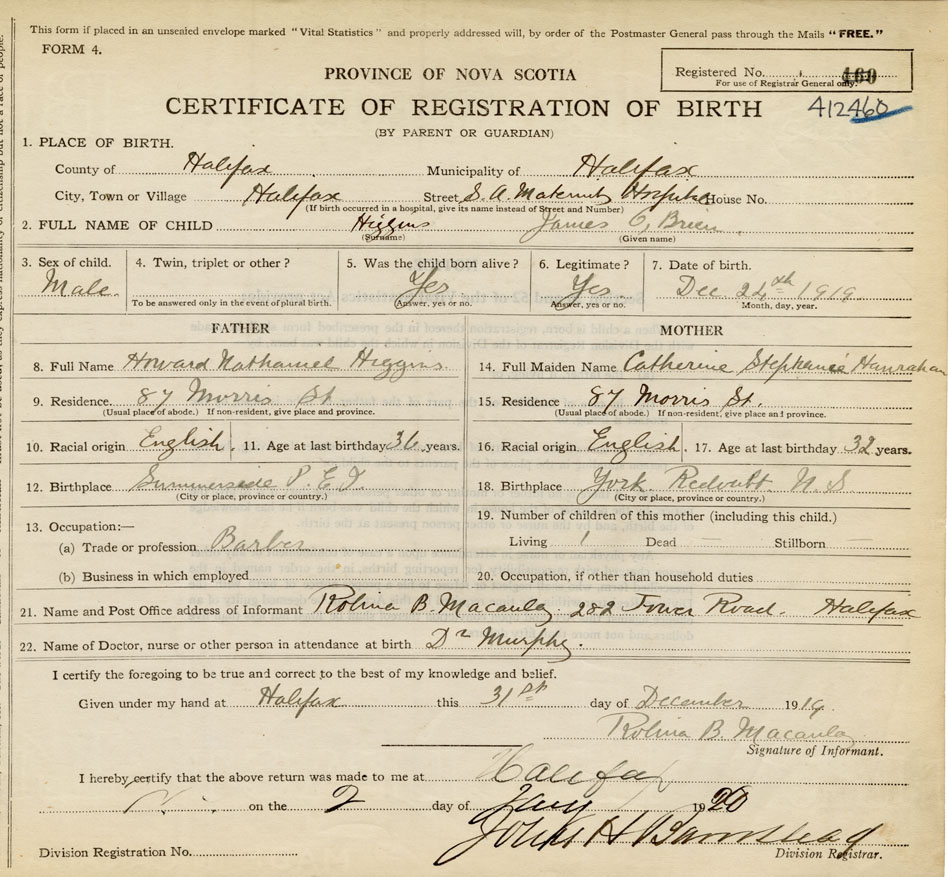 This form if placed in an unsealed envelope marked "Vital Statistics" and properly addressed will, by order of the Postmaster General pass through the Mails "FREE."
FORM 4.
PROVINCE OF NOVA SCOTIA
Registered No. 460
For use of Registrar General only.
CERTIFICATE OF REGISTRATION OF BIRTH
412460
(BY PARENT OR GUARDIAN)
1. PLACE OF BIRTH.
County of Halifax Municipality of Halifax
City, Town or Village Halifax Street S. A. Maternity Hospital House No.
(If birth occurred in a hospital, give its name instead of Street and Number)
2. FULL NAME OF CHILD Higgins James O'Brien
(Surname) (Given name)
3. Sex of child. 4. Twin, triplet or other? 5. Was the child born alive? 6. Legitimate? 7. Date of birth.
Male. Yes Yes Dec 24th 1919
To be answered only in the event of plural birth. Answer, yes or no. Answer, yes or no. Month, day, year.
FATHER MOTHER
8. Full Name Howard Nathaniel Higgins 14. Full Maiden Name Catherine Stephanie Hanrahan
9. Residence. 87 Morris St 15. Residence 87 Morris St.
(Usual place of abode.) If non-resident, give place and province. (Usual place of abode.) If non-resident, give place and province.
10. Racial origin English. 11. Age at last birthday 36 years. 16. Racial origin English. 17. Age at last birthday 32 years.
12. Birthplace Summerside P.E.I 18. Birthplace York Redoubt N.S
(City or place, province or country.) (City or place, province or country.)
13. Occupation:— 19. Number of children of this mother (including this child.)
(a) Trade or profession Barber Living 1 Dead — Stillborn —
(b) Business in which employed 20. Occupation, if other than household duties
21. Name and Post Office address of Informant Rolina B. Macaulay 282 Tower Road. Halifax
22. Name of Doctor, nurse or other person in attendance at birth Dr Murphy.
I certify the foregoing to be true and correct to the best of my knowledge and belief.
Given under my hand at Halifax this 31st day of December 1919
Rolina B. Macaulay
Signature of Informant.
I hereby certify that the above return was made to me at Halifax
on the 2 day of Jany 1920
John H Barnstead
Division Registration No. Division Registrar.